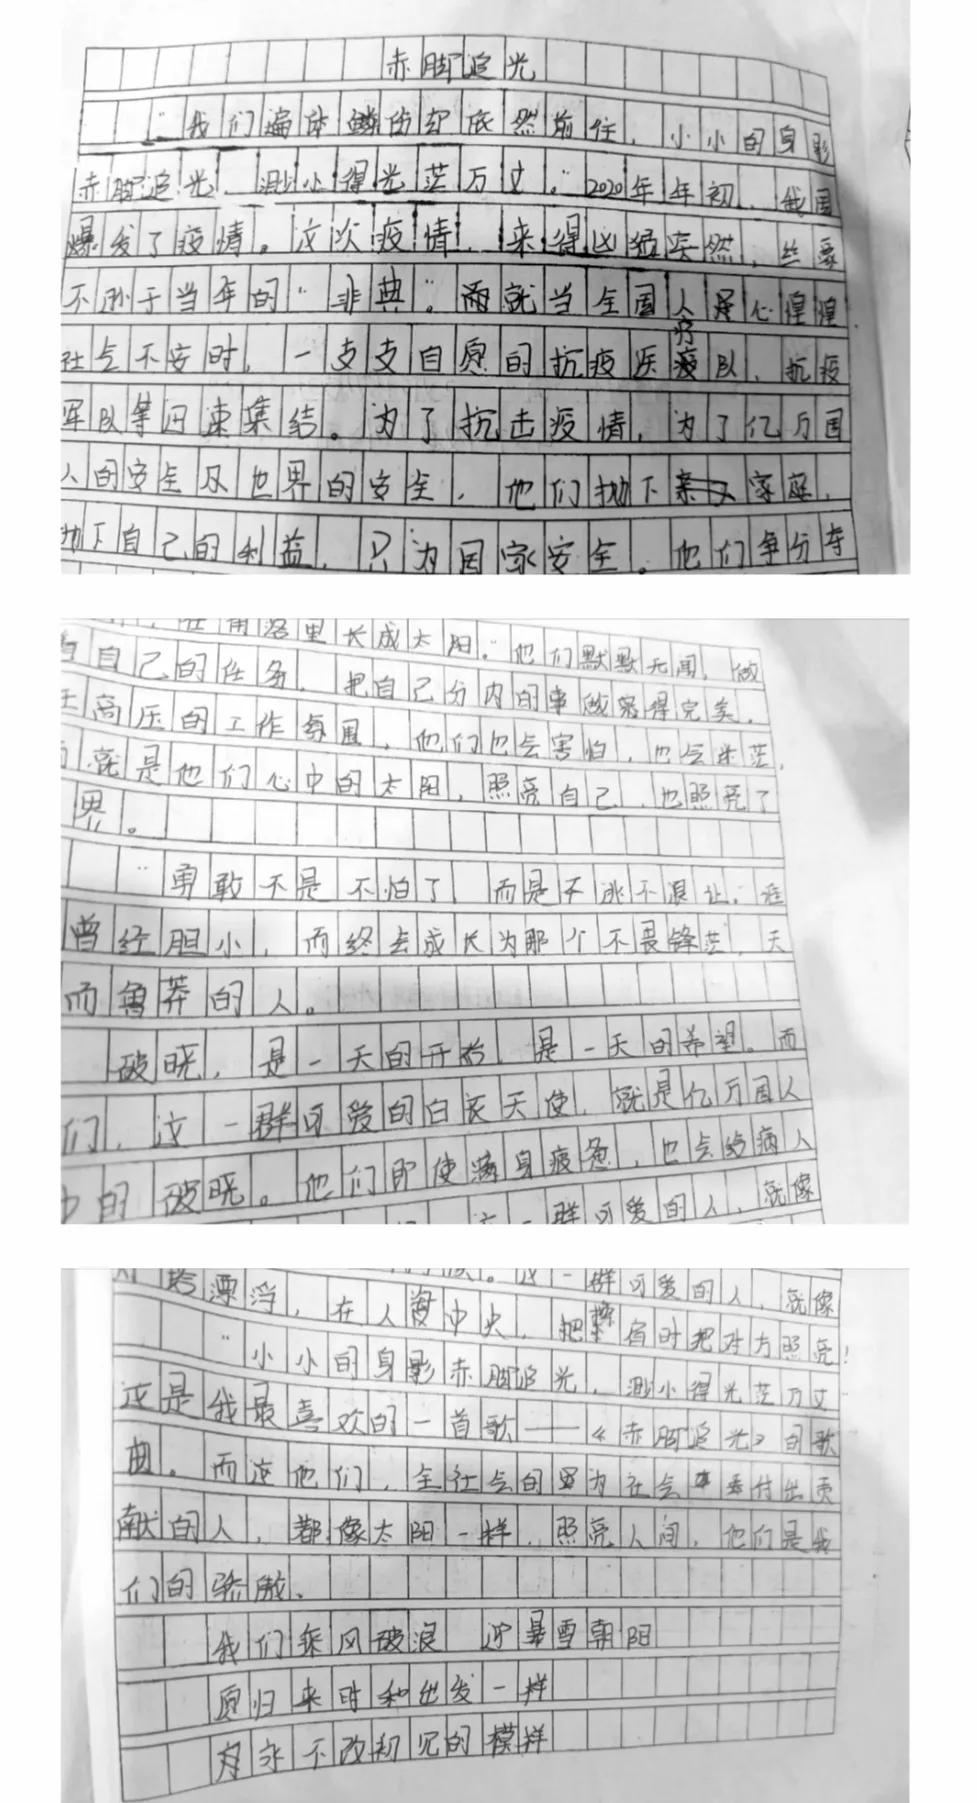 赤脚追光
“我们遍体鳞伤却依然前往，小小的身影
赤脚追光，渺小得光茫万丈。”2020年年初，我国
爆发了疫情。这次疫情，来得凶猛突然，丝毫
不亚于当年的“非典”。而就当全国人民心惶惶
社会不安时，一支支自愿的抗疫医疗队，抗疫
军队等迅速集结。为了抗击疫情，为了亿万国
人的安全及世界的安全，他们抛下家庭，
抛下自己的利益，只为国家安全。他们争分夺
在角落里长成太阳。”他们默默无闻，做
自己的任务，把自己分内的事做完得完美，
高压的工作氛围，他们也会害怕，也会迷茫，
就是他们心中的太阳，照亮自己，也照亮了
界。
“勇敢不是不怕了，而是不逃不退让。”谁
曾经胆小，而终会成长为那个不畏锋茫，天
而鲁莽的人。
破晓，是一天的开始，是一天的希望。而
们，这一群可爱的白衣天使，就是亿万国人
中的破晓。他们即使满身疲惫，也会给病人
这一群可爱的人，就像
漂浮，在人海中央，把有时把对方照亮！
“小小的身影赤脚追光，渺小得光茫万丈”
这是我最喜欢的一首歌——《赤脚追光》的歌
曲。而这他们，全社会的为社会付出贡
献的人，都像太阳一样，照亮人间，他们是我
们的骄傲。
我们乘风破浪 迎暴雪朝阳
愿归来时和出发一样
永不改初见的模样